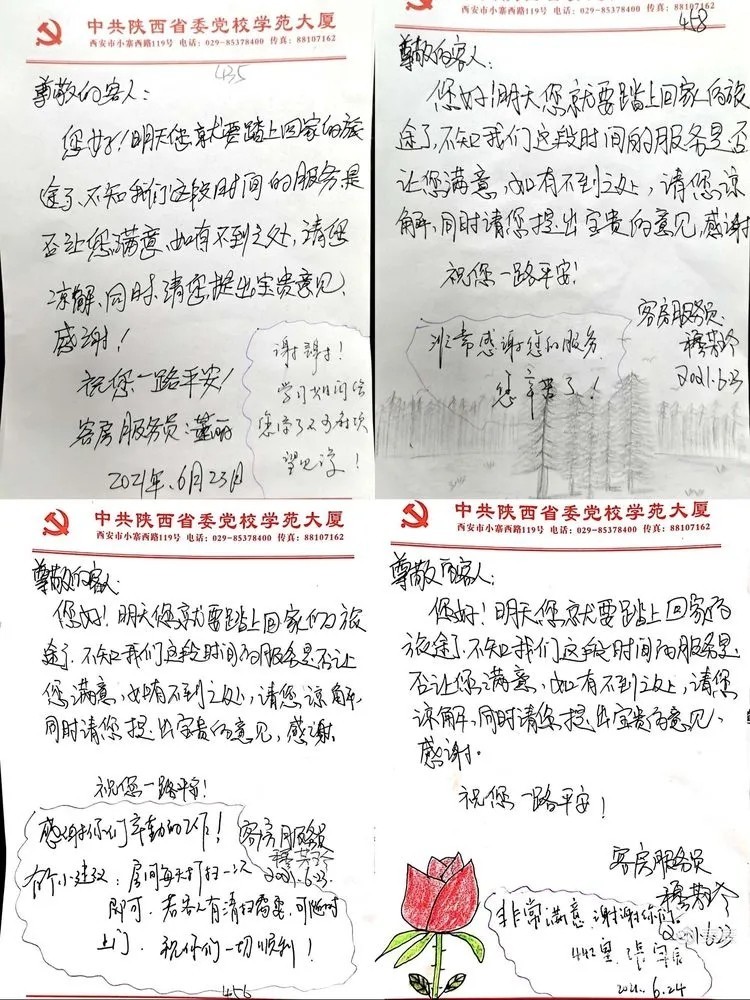 中共陕西省委党校学苑大厦
西安市小寨西路119号 电话：029-85378400 传真：88107162
435
尊敬的客人：
您好！明天您就要踏上回家的旅
途了、不知我们这段时间的服务是
否让您满意、如有不到之处，请您
凉解、同时，请您提出宝贵意见、
感谢！
祝您一路平安！
客房服务员：董丽
2021年、6月23日
谢谢！
学习期间给
您添了不少麻烦
望见谅！
458
尊敬的客人：
您好！明天您就要踏上回家的旅
途了，不知我们这段时间的服务是否
让您满意，如有不到之处，请您谅
解，同时请您提出宝贵的意见，感谢
祝您一路平安！
客房服务员：
2021.6.23
非常感谢您的服务
您辛苦了！
中共陕西省委党校学苑大厦
西安市小寨西路119号 电话：029-85378400 传真：88107162
尊敬的客人：
您好！明天您就要踏上回家的旅
途了、不知我们这段时间的服务是否让
您满意，如有不到之处，请您谅解，
同时请您提出宝贵的意见，感谢。
祝您一路平安！
客房服务员
2021.6.23.
感谢你们辛勤的工作！
有个小建议：房间每天打扫一次
即可，若客人有清扫需要，可随时
上门．祝你们一切顺利！
456
中共陕西省委党校学苑大厦
西安市小寨西路119号 电话：029-85378400 传真：88107162
尊敬的客人：
您好！明天您就要踏上回家的
旅途了、不知我们这段时间的服务是
否让您满意、如有不到之处，请您
谅解，同时请您提出宝贵的意见、
感谢。
祝您一路平安！
客房服务员
2021.6.23
非常满意，谢谢你们。
442里
2021.6.24